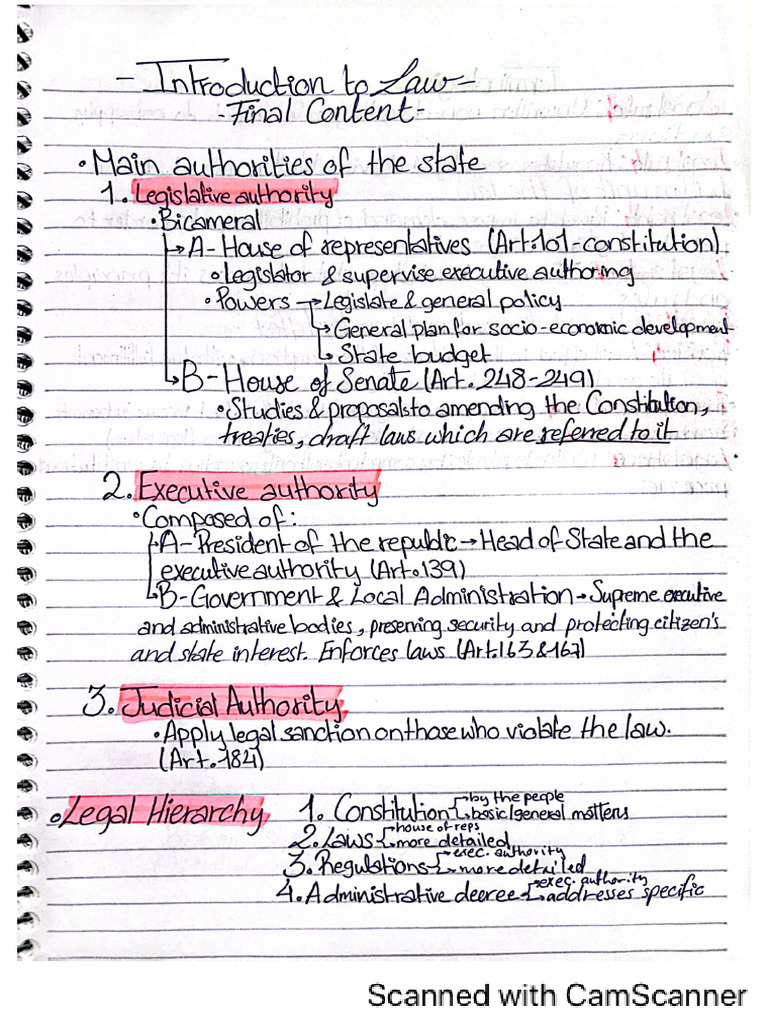 - Introduction to Law -
- Final Content -
• Main authorities of the state
1. Legislative authority
• Bicameral
→ A- House of representatives (Art.101-constitution)
• Legislator & supervise executive authoring
• Powers → Legislate & general policy
→ General plan for socio-economic development
→ State budget
→ B- House of Senate (Art. 248-249)
• Studies & proposals to amending the Constitution,
treaties, draft laws which are referred to it
2. Executive authority
• Composed of:
A- President of the republic → Head of State and the
executive authority (Art.139)
B- Government & Local Administration → Supreme executive
and administrative bodies, preserving security and protecting citizen's
and state interest. Enforces laws (Art.163 & 167)
3. Judicial Authority
• Apply legal sanction on those who violate the law.
(Art. 184)
• Legal Hierarchy
1. Constitution → by the people
→ basic/general matters
2. Laws → house of reps
→ more detailed
3. Regulations → exec. authority
→ more detailed
4. Administrative decree → exec. authority
→ addresses specific
Scanned with CamScanner